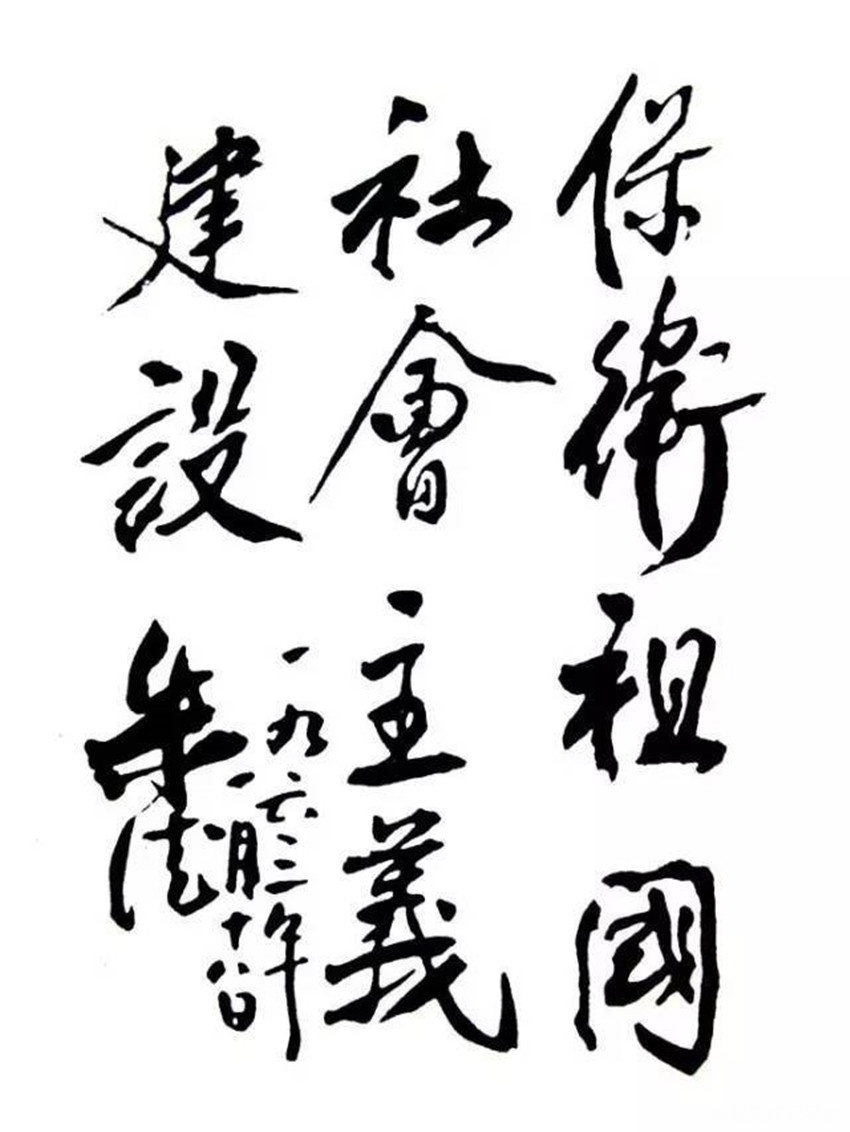 保衛祖國
社會主義
建設
一九六三年
一月十八日
朱德